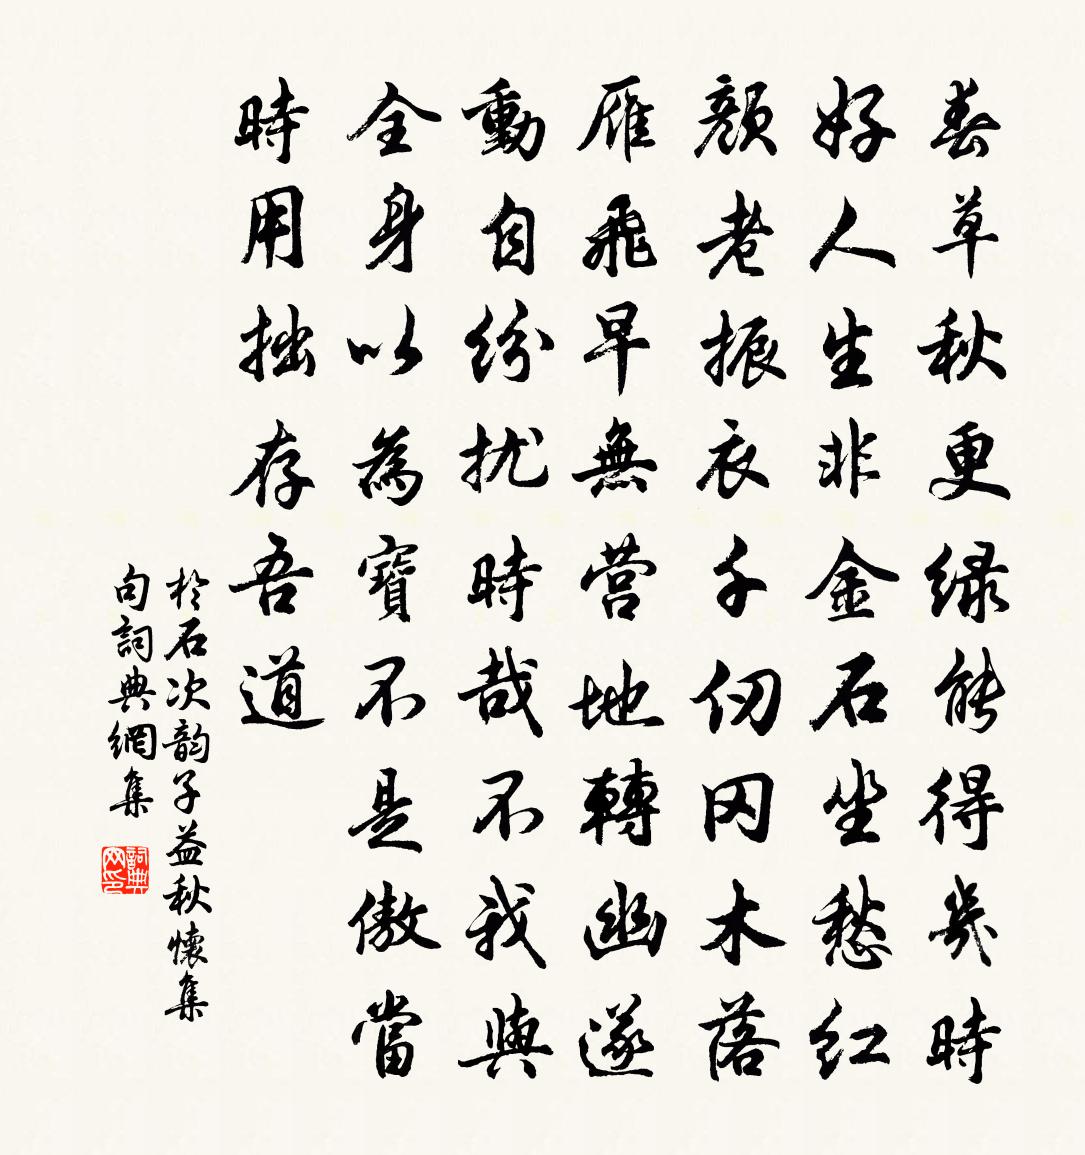 春草秋更綠能得幾時
好人生非金石坐愁紅
顏老振衣千仞岡木落
雁飛早無營地轉幽邃
動自紛擾時哉不我與
全身以為寶不是傲當
時用拙存吾道
於石次韵子益秋懷集
句詞典網集
詞典網印